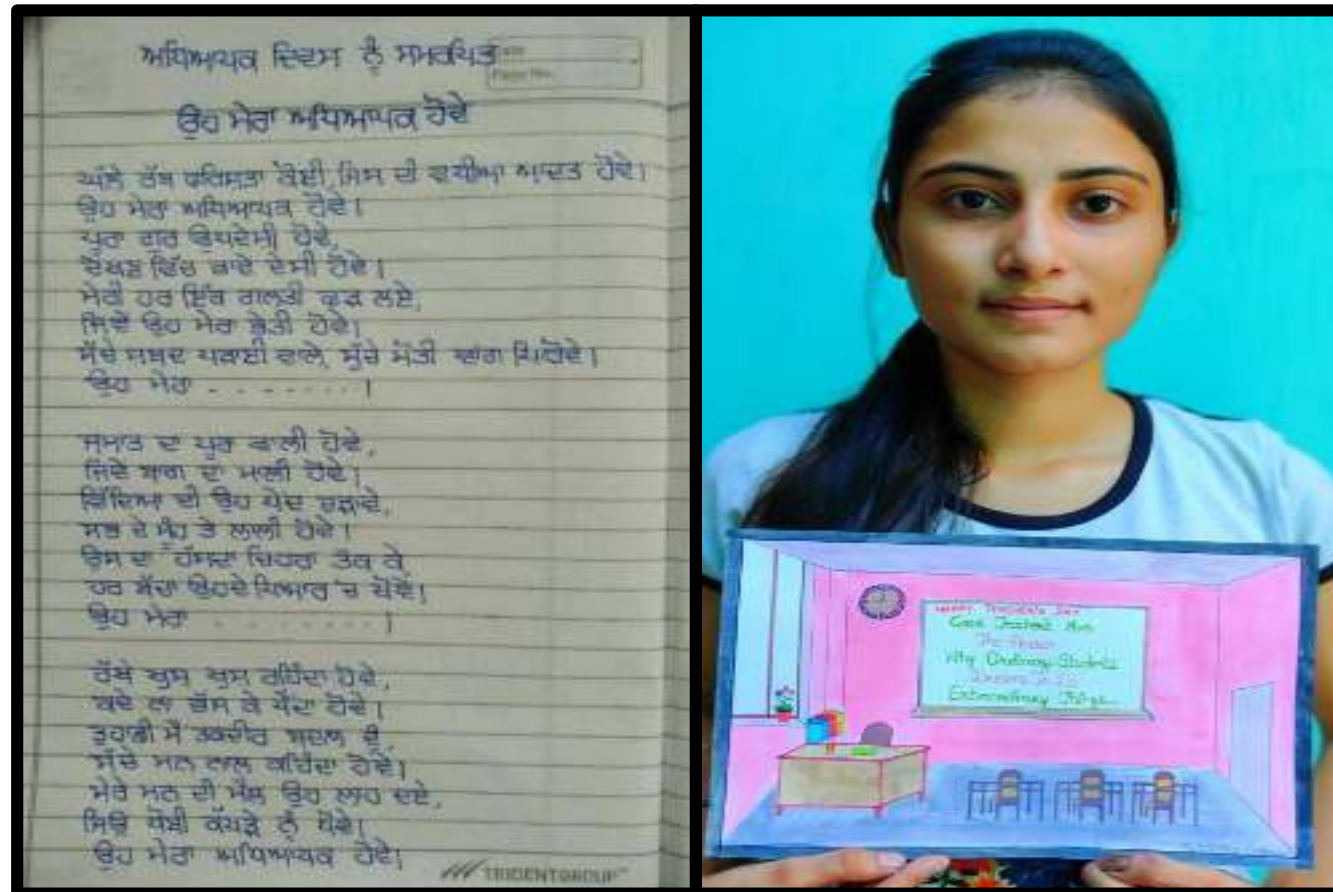 ਅਧਿਆਪਕ ਦਿਵਸ ਨੂੰ ਸਮਰਪਿਤ
Page No.
ਉਹ ਮੇਰਾ ਅਧਿਆਪਕ ਹੋਵੇ
ਰੱਬ ਫਰਿਸਤਾ ਕੋਈ ਜਿਸ ਦੀ ਵਧੀਆ ਆਦਤ ਹੋਵੇ।
ਉਹ ਮੇਰਾ ਅਧਿਆਪਕ ਹੋਵੇ।
ਪੂਰਾ ਗੁਰ ਉਪਦੇਸੀ ਹੋਵੇ,
ਦੇਖਣ ਵਿੱਚ ਦੇਸੀ ਹੋਵੇ।
ਮੇਰੀ ਹਰ ਇੱਕ ਗਲਤੀ ਫੜ ਲਏ,
ਜਿਵੇਂ ਉਹ ਮੇਰਾ ਭੇਤੀ ਹੋਵੇ।
ਸੱਚੇ ਸਬਦ ਪੜਾਈ ਵਾਲੇ, ਸੁੱਚੇ ਮੋਤੀ ਵਾਂਗ ਪਿਰੋਵੇ।
ਉਹ ਮੇਰਾ - - - - - - - ।
ਜਮਾਤ ਦਾ ਪੂਰਾ ਹੋਵੇ,
ਜਿਵੇਂ ਬਾਗ ਦਾ ਮਾਲੀ ਹੋਵੇ।
ਵਿੱਦਿਆ ਦੀ ਉਹ ਚੜਾਵੇ,
ਸਭ ਦੇ ਮੂੰਹ ਤੇ ਲਾਲੀ ਹੋਵੇ।
ਉਸ ਦਾ ਹੱਸਦਾ ਚਿਹਰਾ ਤੱਕ ਕੇ,
ਹਰ ਬੱਚਾ ਉਹਦੇ ਪਿਆਰ 'ਚ ਖੋਵੇ।
ਉਹ ਮੇਰਾ - ।
ਖੁਸ ਖੁਸ ਰਹਿੰਦਾ ਹੋਵੇ,
ਕਦੇ ਨਾ ਹੋਵੇ।
ਤੁਹਾਡੀ ਮੈਂ ਤਕਦੀਰ ਬਦਲ ਦੂੰ,
ਸੱਚੇ ਮਨ ਨਾਲ ਕਹਿੰਦਾ ਹੋਵੇ।
ਮੇਰੇ ਮਨ ਦੀ ਮੈਲ ਉਹ ਲਾਹ ਦਏ,
ਜਿਉਂ ਧੋਬੀ ਕੱਪੜੇ ਨੂੰ ਧੋਵੇ।
ਉਹ ਮੇਰਾ ਅਧਿਆਪਕ ਹੋਵੇ।
TRIDENTGROUP
HAPPY TEACHER'S DAY
Good Teachers Are
The Reason
Why Ordinary Students
Dreams To Do
Extraordinary Things